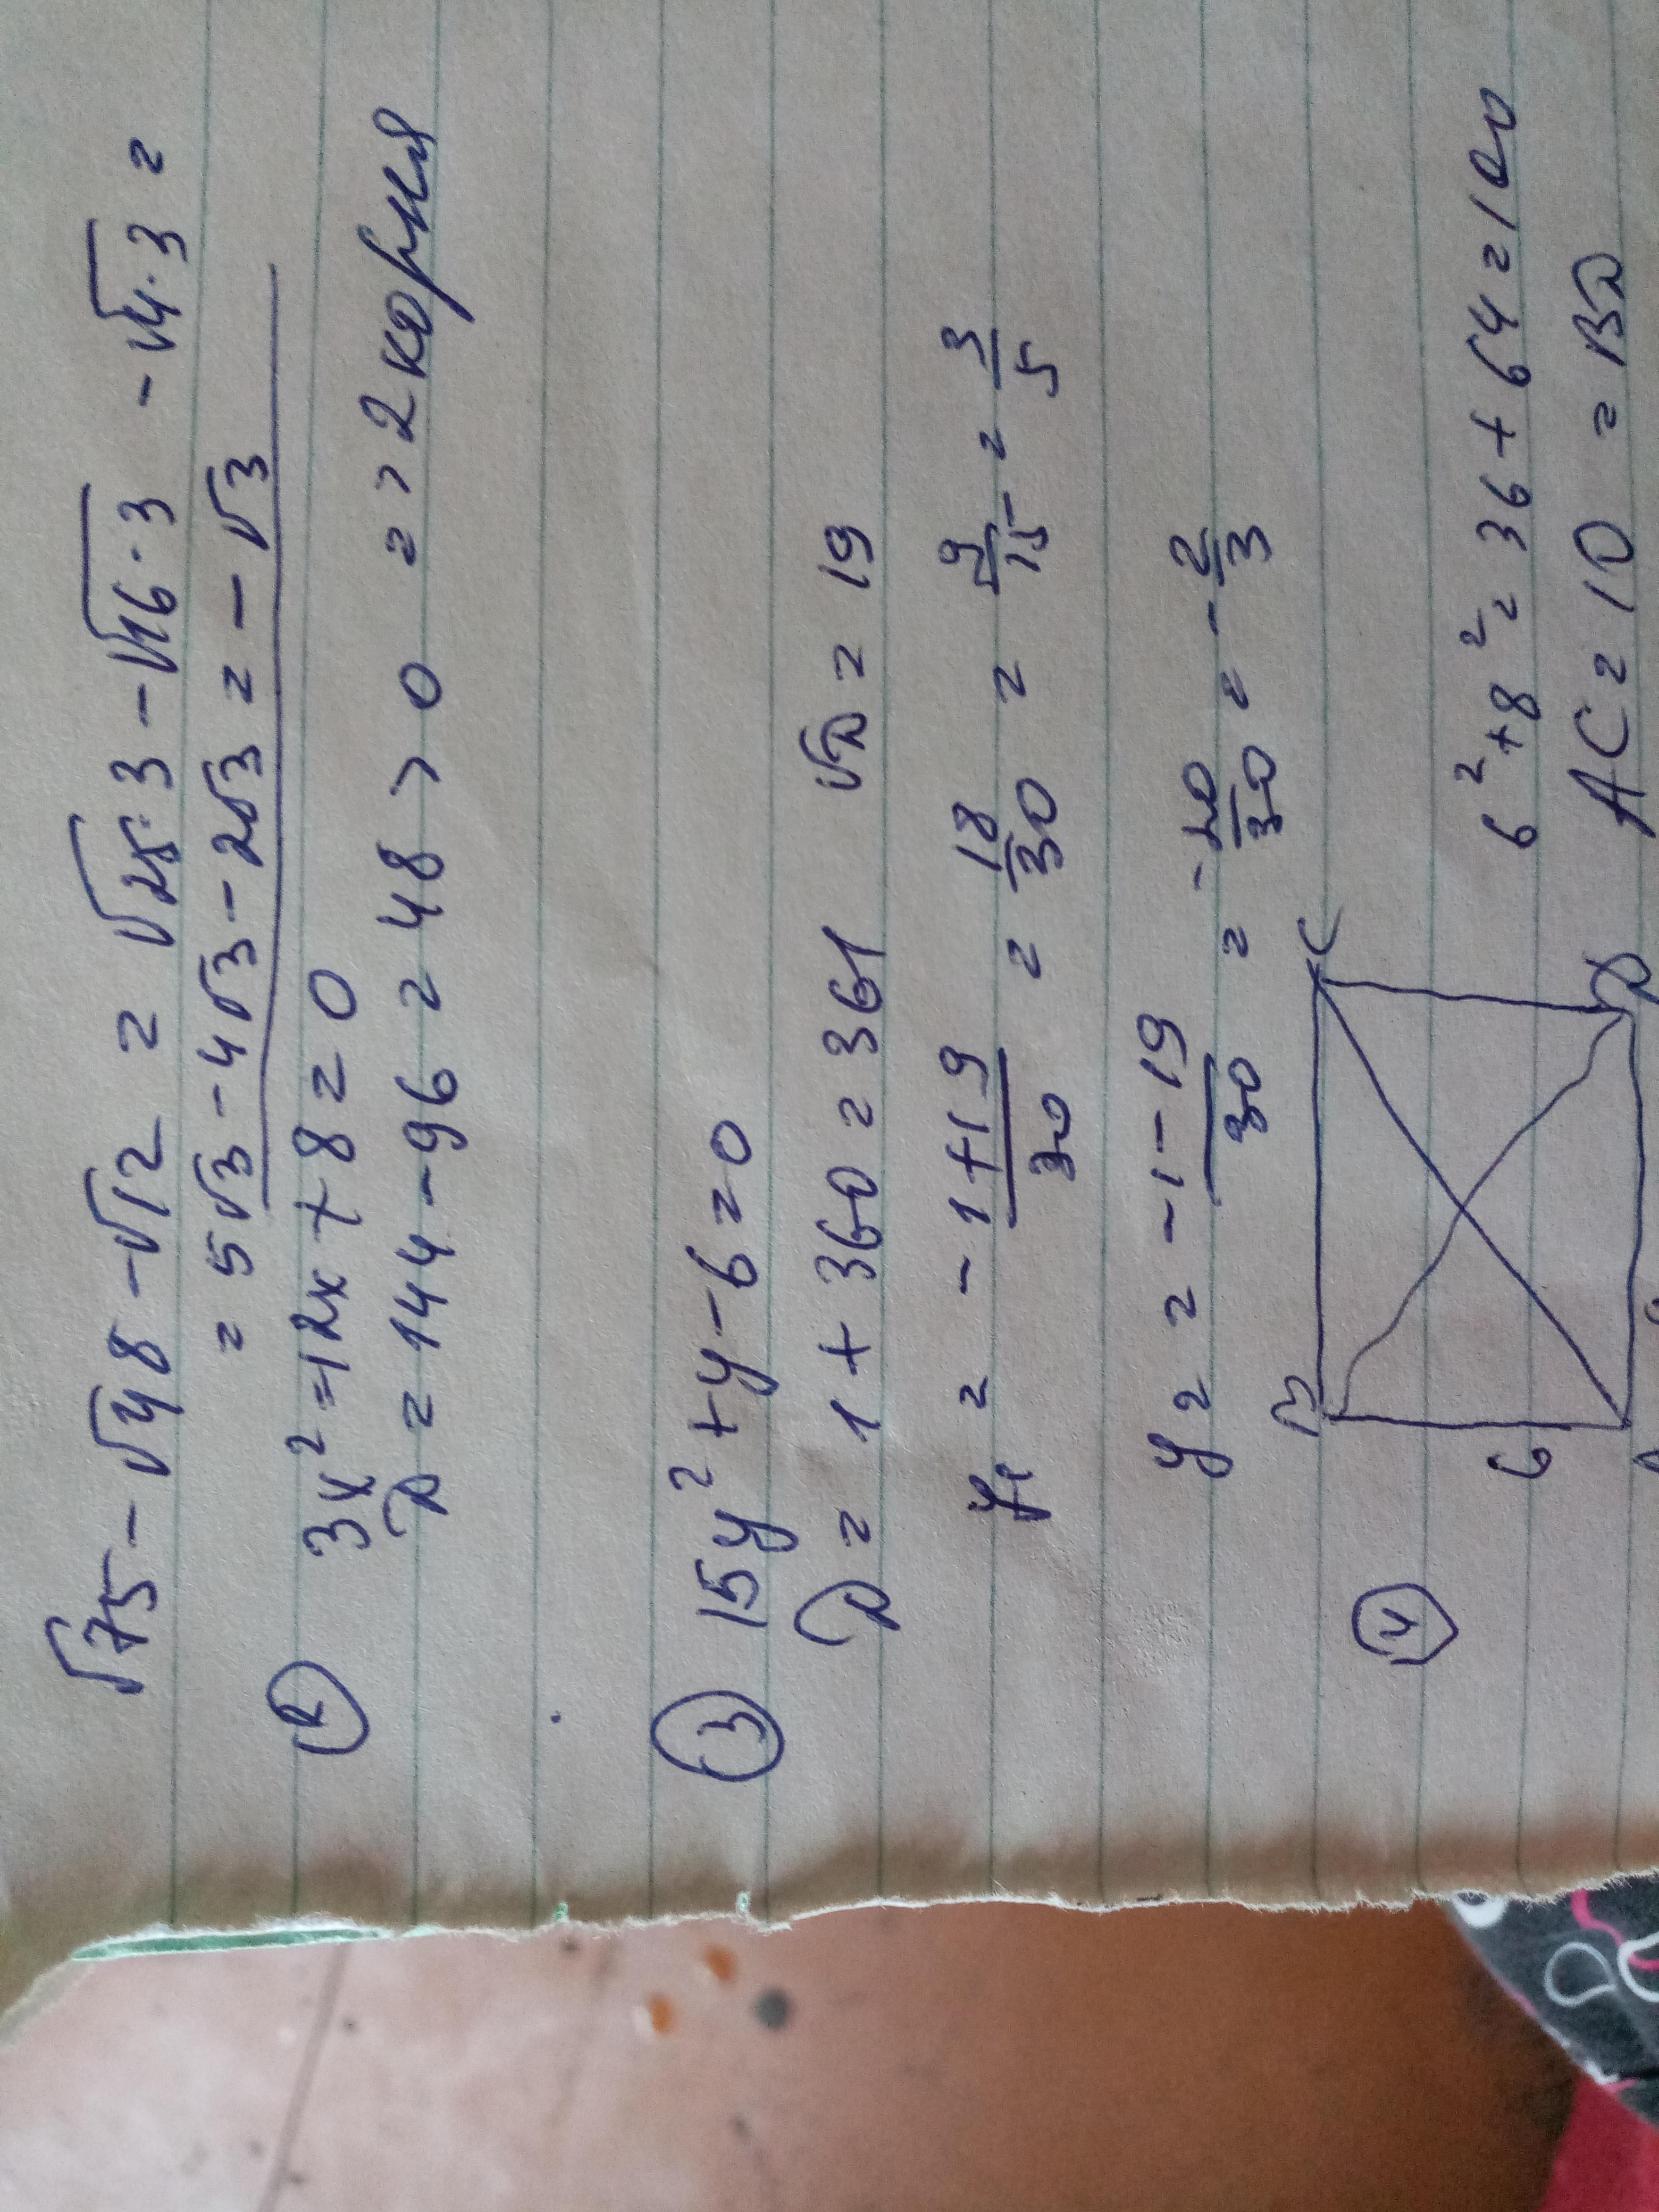 √75 - √48 - √12 = √25·3 - √16·3 - √4·3 =
= 5√3 - 4√3 - 2√3 = - √3
② 3x² - 12x + 8 = 0
D = 144 - 96 = 48 > 0 => 2 корня
③ 15y² + y - 6 = 0
D = 1 + 360 = 361 √D = 19
y₁ = (-1+19)/30 = 18/30 = 9/15 = 3/5
y₂ = (-1-19)/30 = -20/30 = -2/3
④ B C
6 6² + 8² = 36 + 64 = 100
D AC = 10 = BD